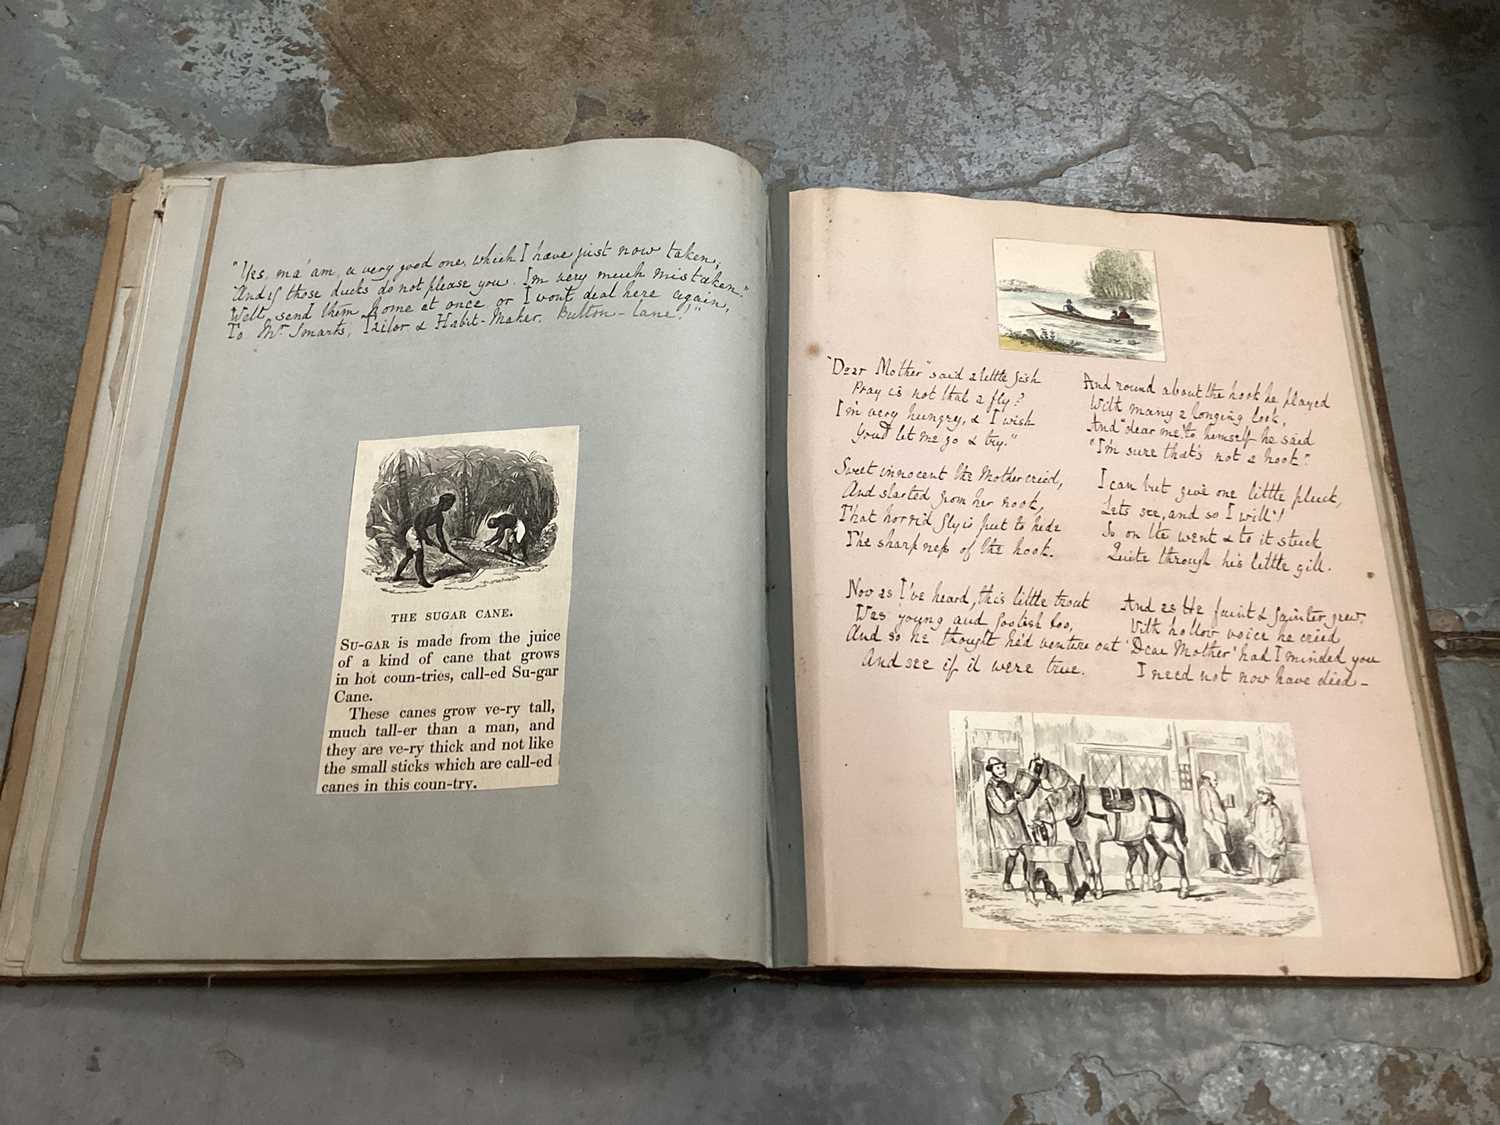 "Yes, ma'am, a very good one, which I have just now taken,
And if those ducks do not please you. I'm very much mistaken."
Well, send them home at once or I wont deal here again,
To Mr. Smarts, Tailor & Habit-Maker, Button-Lane!"
THE SUGAR CANE.
SU-GAR is made from the juice
of a kind of cane that grows
in hot coun-tries, call-ed Su-gar
Cane.
These canes grow ve-ry tall,
much tall-er than a man, and
they are ve-ry thick and not like
the small sticks which are call-ed
canes in this coun-try.
"Dear Mother" said a little fish
Pray is not that a fly?
I'm very hungry, & I wish
You'd let me go & try."
Sweet innocent the Mother cried,
And started from her nook,
That horrid fly is put to hide
The sharpness of the hook.
Now as I've heard, this little trout
Was young and foolish too,
And so he thought he'd venture out
And see if it were true.
And round about the hook he played
With many a longing look,
And "dear me" to himself he said
"I'm sure that's not a hook."
I can but give one little pluck,
Lets see, and so I will"!
So on he went & to it stuck
Quite through his little gill.
And as He faint & fainter grew,
With hollow voice he cried
'Dear Mother' had I minded you
I need not now have died-